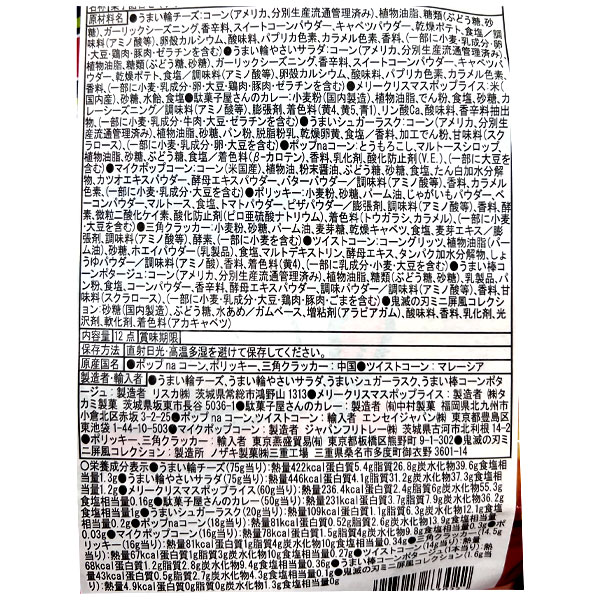 原材料名 ●うまい輪チーズ:コーン(アメリカ、分別生産流通管理済み)、植物油脂、糖類(ぶどう糖、砂
糖)、ガーリックシーズニング、香辛料、スイートコーンパウダー、キャベツパウダー、乾燥ポテト、食塩／調
味料(アミノ酸等)、卵殻カルシウム、酸味料、パプリカ色素、カラメル色素、香料、(一部に小麦・乳成分・卵
・大豆・鶏肉・豚肉・ゼラチンを含む)●うまい輪やさいサラダ:コーン(アメリカ、分別生産流通管理済み)、
植物油脂、糖類(ぶどう糖、砂糖)、ガーリックシーズニング、香辛料、スイートコーンパウダー、キャベツパ
ウダー、乾燥ポテト、食塩／調味料(アミノ酸等)、卵殻カルシウム、酸味料、パプリカ色素、カラメル色素、
香料、(一部に小麦・乳成分・卵・大豆・鶏肉・豚肉・ゼラチンを含む)●メリークリスマスポップライス:米(
国内産)、砂糖、水飴、食塩●駄菓子屋さんのカレー:小麦粉(国内製造)、植物油脂、でん粉、食塩、砂糖、カ
レーシーズニング／調味料(アミノ酸等)、膨張剤、着色料(黄4、黄5、青1)、リン酸Ca、酸味料、香辛料抽出
物、(一部に小麦・乳成分・牛肉・大豆・ゼラチンを含む)●うまいシュガーラスク:コーン(アメリカ、分別生
産流通管理済み)、植物油脂、砂糖、パン粉、脱脂粉乳、乾燥卵黄、食塩／香料、加工でん粉、甘味料(スク
ラロース)、(一部に小麦・乳成分・卵・大豆を含む)●ポップnaコーン:とうもろこし、マルトースシロップ、
植物油脂、砂糖、ぶどう糖、食塩／着色料(β-カロテン)、香料、乳化剤、酸化防止剤(V.E.)、(一部に大豆を
含む)●マイクポップコーン:コーン(米国産)、植物油、粉末醤油、ぶどう糖、砂糖、食塩、たん白加水分解
物、カツオエキスパウダー、酵母エキスパウダー、バターパウダー／調味料(アミノ酸等)、香料、カラメル
色素、(一部に小麦・乳成分・大豆を含む)●ポリッキー:小麦粉、砂糖、パーム油、じゃがいもパウダー、ベ
ーコンパウダー、マルトース、食塩、トマトパウダー、ピザパウダー／膨張剤、調味料(アミノ酸等)、香料、酵
素、微粒二酸化ケイ素、酸化防止剤(ピロ亜硫酸ナトリウム)、着色料(トウガラシ、カラメル)、(一部に小麦・
大豆を含む)●三角クラッカー:小麦粉、砂糖、パーム油、麦芽糖、乾燥キャベツ、食塩、麦芽エキス／膨
張剤、調味料(アミノ酸等)、酵素、(一部に小麦を含む)●ツイストコーン:コーングリッツ、植物油脂(パー
ム油)、砂糖、ホエイパウダー(乳製品)、食塩、マルトデキストリン、酵母エキス、タンパク加水分解物、しょ
うゆパウダー／調味料(アミノ酸)、香料、着色料(黄4)、(一部に乳成分・小麦・大豆を含む)●うまい棒コ
ーンポタージュ:コーン(アメリカ、分別生産流通管理済み)、植物油脂、糖類(ぶどう糖、砂糖)、乳製品、パ
ン粉、食塩、コーンペースト、香辛料、粉末しょうゆ、酵母エキスパウダー／調味料(アミノ酸等)、香料、甘
味料(スクラロース)、(一部に小麦・乳成分・大豆・鶏肉・豚肉・ごまを含む)●鬼滅の刃ミニ屏風コレクシ
ョン:砂糖(国内製造)、ぶどう糖、水あめ／ガムベース、増粘剤(アラビアガム)、酸味料、香料、乳化剤、光
沢剤、軟化剤、着色料(アカキャベツ)
内容量 12点 賞味期限
保存方法 直射日光・高温多湿を避けて保存してください。
原産国名 ●ポップnaコーン、ポリッキー、三角クラッカー:中国●ツイストコーン:マレーシア
製造者・輸入者 ●うまい輪チーズ、うまい輪やさいサラダ、うまいシュガーラスク、うまい棒コーンポタ
ージュ:製造者 リスカ㈱ 茨城県常総市鴻野山1313●メリークリスマスポップライス:製造者 ㈱タ
カミ製菓 茨城県坂東市長谷5036-1●駄菓子屋さんのカレー:製造者 ㈲中村製菓 福岡県北九州市
小倉北区赤坂3-2-25●ポップnaコーン、ツイストコーン:輸入者 エンセイジャパン㈱ 東京都豊島区
東池袋1-44-10-503●マイクポップコーン:製造者 ジャパンフリトレー㈱ 茨城県古河市北利根14-2
●ポリッキー、三角クラッカー:輸入者 東京燕盛貿易㈲ 東京都板橋区熊野町9-1-302●鬼滅の刃ミ
ニ屏風コレクション:製造所 ノザキ製菓㈱三重工場 三重県桑名市多度町御衣野3601-14
○栄養成分表示●うまい輪チーズ(75g当り)熱量422kcal蛋白質5.4g脂質26.8g炭水化物39.6g食塩
相当量1.3g●うまい輪やさいサラダ(75g当り)熱量446kcal蛋白質4.1g脂質31.2g炭水化物37.3g食塩相
当量1.2g●メリークリスマスポップライス(60g当り)熱量236.4kcal蛋白質2.4g脂質0.6g炭水化物55.3g
食塩相当量0.16g●駄菓子屋さんのカレー(50g当り)熱量231kcal蛋白質3.7g脂質7.9g炭水化物36.2g
食塩相当量1g●うまいシュガーラスク(20g当り)熱量109kcal蛋白質1.1g脂質6.3g炭水化物12.1g食
塩相当量0.2g●ポップnaコーン(18g当り)熱量81kcal蛋白質0.52g脂質2.6g炭水化物13.9g食塩相当量
0.03g●マイクポップコーン(16g当り)熱量78kcal蛋白質1.5g脂質4g炭水化物9.8g食塩相当量0.3g●ポ
リッキー(16g当り)熱量81kcal蛋白質1g脂質4g炭水化物10g食塩相当量0.34g●三角クラッカー(14.5g
当り)熱量67kcal蛋白質1g脂質3g炭水化物10g食塩相当量0.27g●ツイストコーン(14g当り)熱量
68kcal蛋白質1.2g脂質2.8g炭水化物9.4g食塩相当量0.36g●うまい棒コーンポタージュ(1本当り)熱
量43kcal蛋白質0.5g脂質2.7g炭水化物4.3g食塩相当量0.1g●鬼滅の刃ミニ屏風コレクション(1.6g当
り)熱量4.9kcal蛋白質0g脂質0g炭水化物1.3g食塩相当量0g